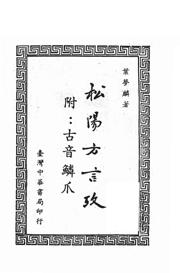 葉夢麟著
松陽方言攷
附：古音鱗爪
臺灣中華書局印行